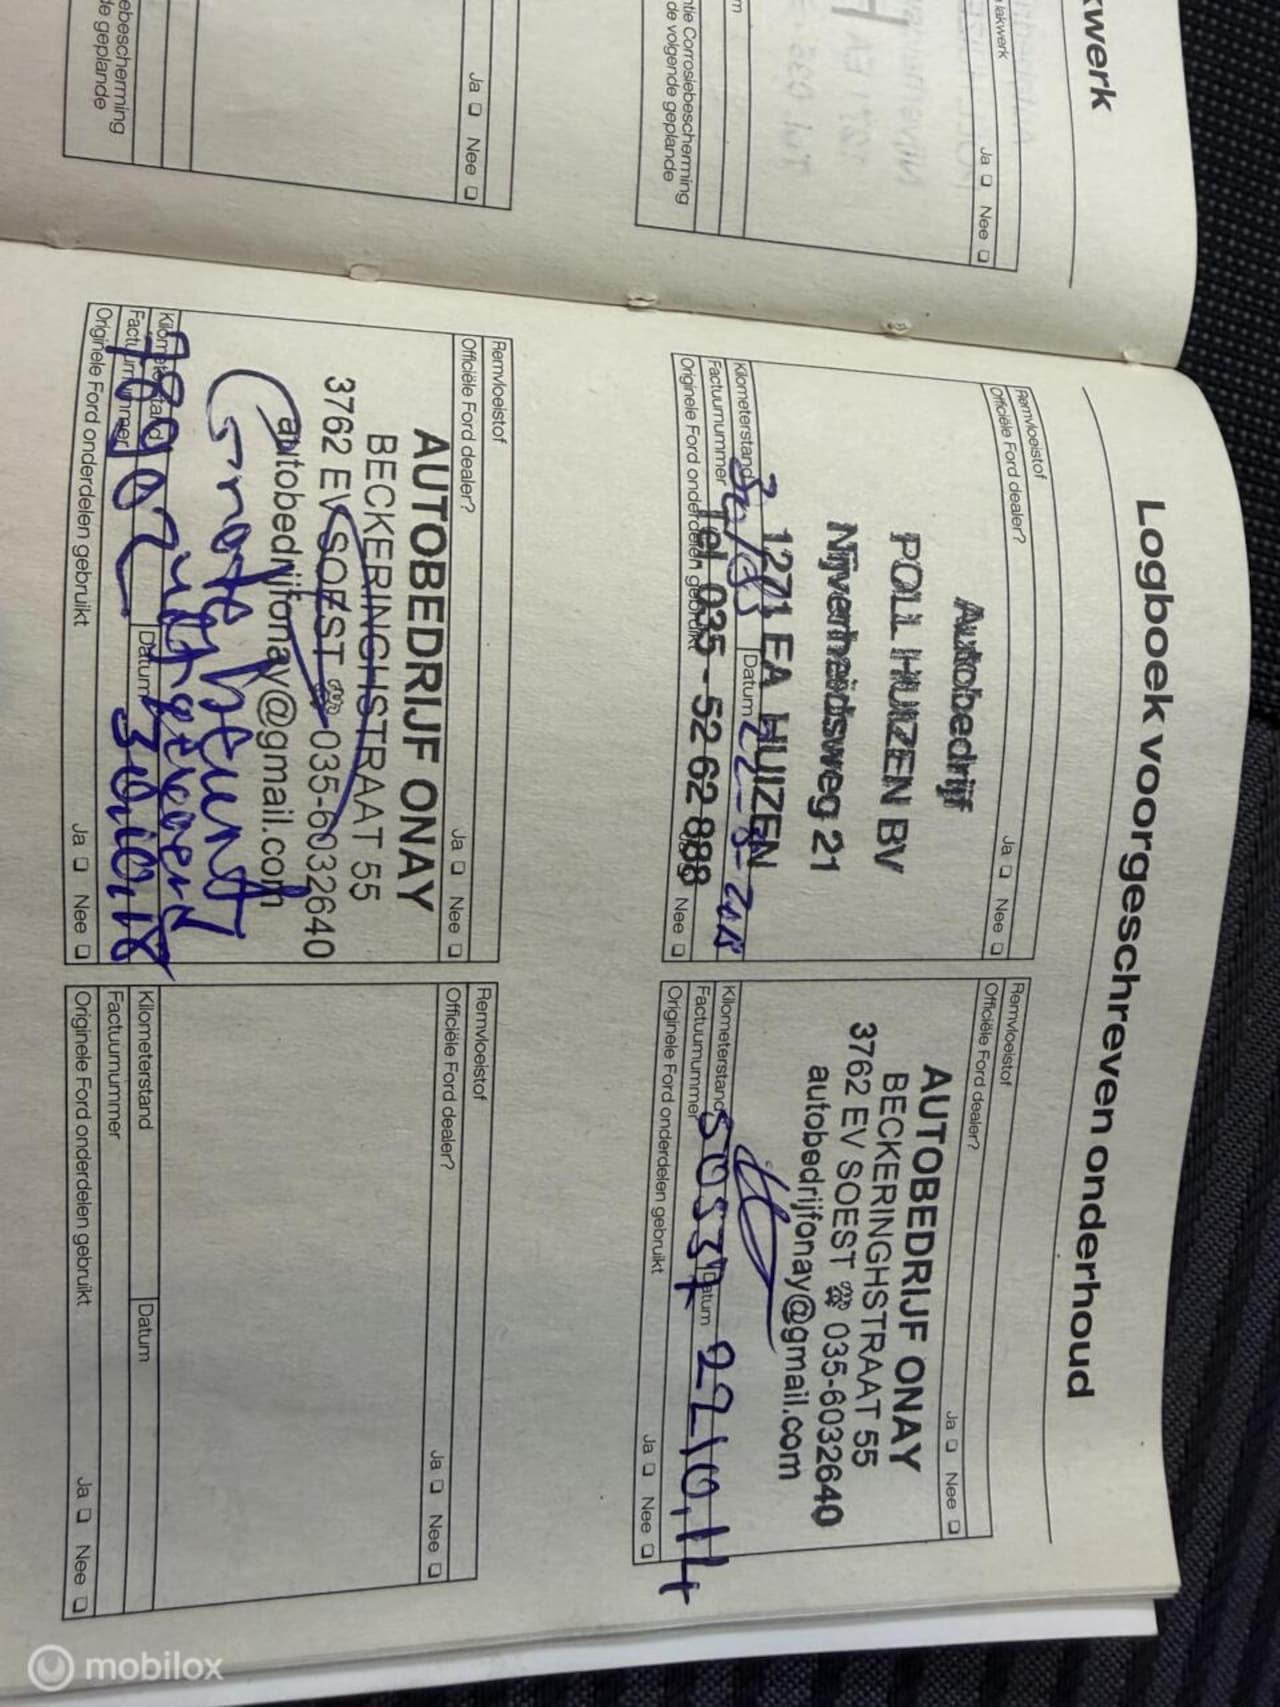 kwerk
lakwerk
Ja Nee
tie Corrosiebescherming
de volgende geplande
Ja Nee
ebescherming
de geplande
Logboek voorgeschreven onderhoud
Remvloeistof
Officiële Ford dealer? Ja Nee
Autobedrijf
POLL HUIZEN BV
Nijverheidsweg 21
1271 EA HUIZEN
Tel 035 - 52 62 888
Kilometerstand
Datum
Factuurnummer
Originele Ford onderdelen gebruikt Nee
Remvloeistof
Officiële Ford dealer? Ja Nee
AUTOBEDRIJF ONAY
BECKERINGHSTRAAT 55
3762 EV SOEST ☎ 035-6032640
autobedrijfonay@gmail.com
Kilometerstand 50537 Datum 22.10.14
Factuurnummer
Originele Ford onderdelen gebruikt Ja Nee
Remvloeistof
Officiële Ford dealer? Ja Nee
AUTOBEDRIJF ONAY
BECKERINGHSTRAAT 55
3762 EV SOEST ☎ 035-6032640
autobedrijfonay@gmail.com
Grote beurt
uitgevoerd
Kilometerstand 78902 Datum
Factuurnummer
Originele Ford onderdelen gebruikt Ja Nee
Remvloeistof
Officiële Ford dealer? Ja Nee
Kilometerstand Datum
Factuurnummer
Originele Ford onderdelen gebruikt Ja Nee
mobilox